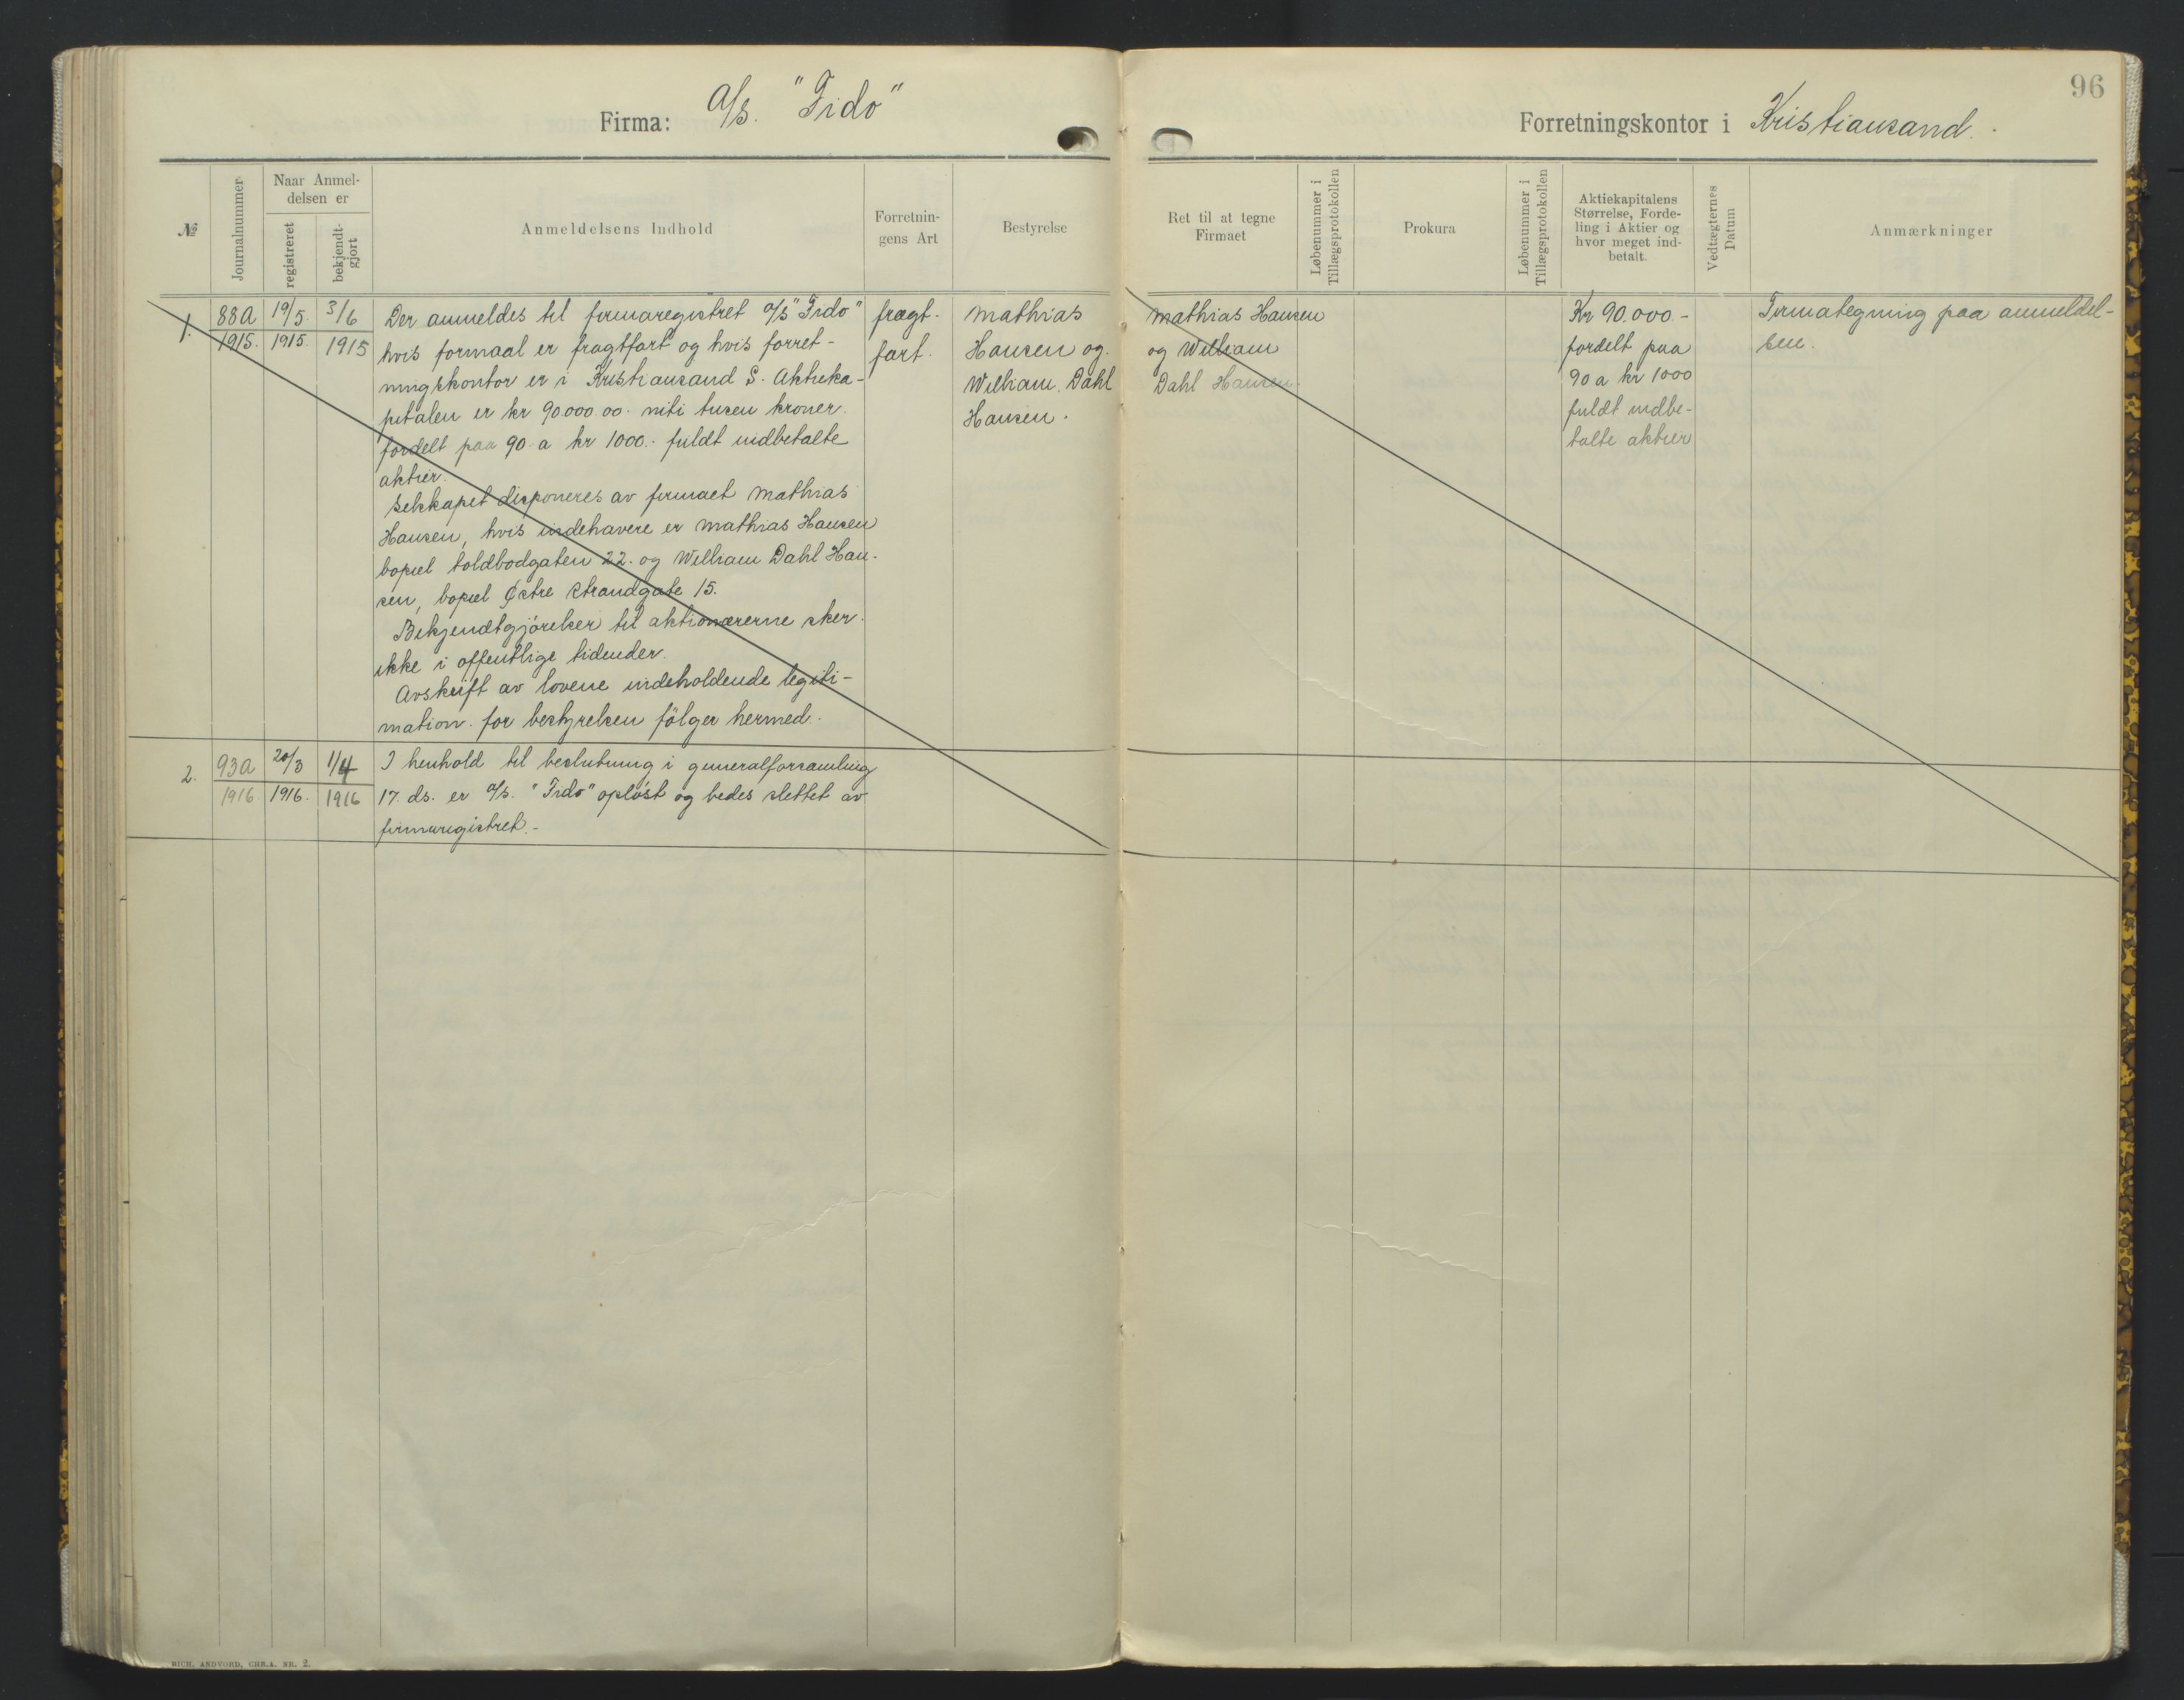 Firma: A/S. "Fido"
Forretningskontor i Kristiansand.
96
№
Journalnummer
Naar Anmel-
delsen er
registreret
bekjendt-
gjort
Anmeldelsens Indhold
Forretnin-
gens Art
Bestyrelse
Ret til at tegne
Firmaet
Løbenummer i
Tillægsprotokollen
Prokura
Løbenummer i
Tillægsprotokollen
Aktiekapitalens
Størrelse, Forde-
ling i Aktier og
hvor meget ind-
betalt.
Vedtægternes
Datum
Anmærkninger
1.
88a
1915.
19/5
1915.
3/6
1915
Der anmeldes til firmaregistret A/S "Fido"
hvis formaal er fragtfart og hvis forret-
ningskontor er i Kristiansand S. Aktieka-
pitalen er kr 90.000.00. niti tusen kroner.
fordelt paa 90 a kr 1000.- fuldt indbetalte
aktier.
Selskapet disponeres av firmaet Mathias
Hansen, hvis indehavere er Mathias Hansen
bopæl toldbodgaten 22. og William Dahl Han-
sen, bopæl Østre Strandgate 15.
Bekjendtgjörelser til aktionærerne sker
ikke i offentlige tidender.
Avskrift av lovene indeholdende legiti-
mation for bestyrelsen fölger hermed.
fragt-
fart.
Mathias
Hansen og
William Dahl
Hansen.
Mathias Hansen
og William
Dahl Hansen.
Kr 90.000.-
fordelt paa
90 a kr 1000
fuldt indbe-
talte aktier
Firmategning paa anmeldel-
sen.
2.
93a
1916
20/3
1916.
1/4
1916
I henhold til beslutning i generalforsamling
17. ds. er A/S. "Fido" oplöst og bedes slettet av
firmaregistret.-
RICH. ANDVORD, CHR.A. NR. 2.